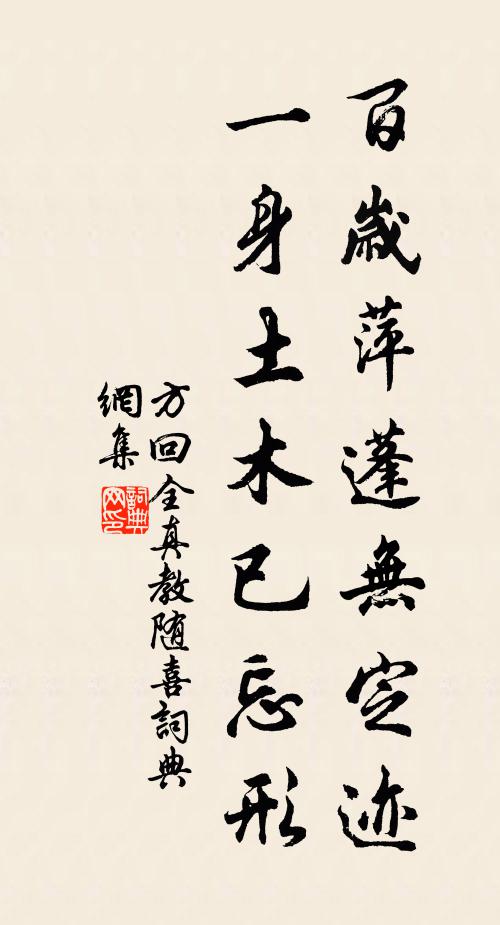 百歲萍蓬無定迹
一身土木已忘形
方回全真教随喜詞典
網集
詞典
网印